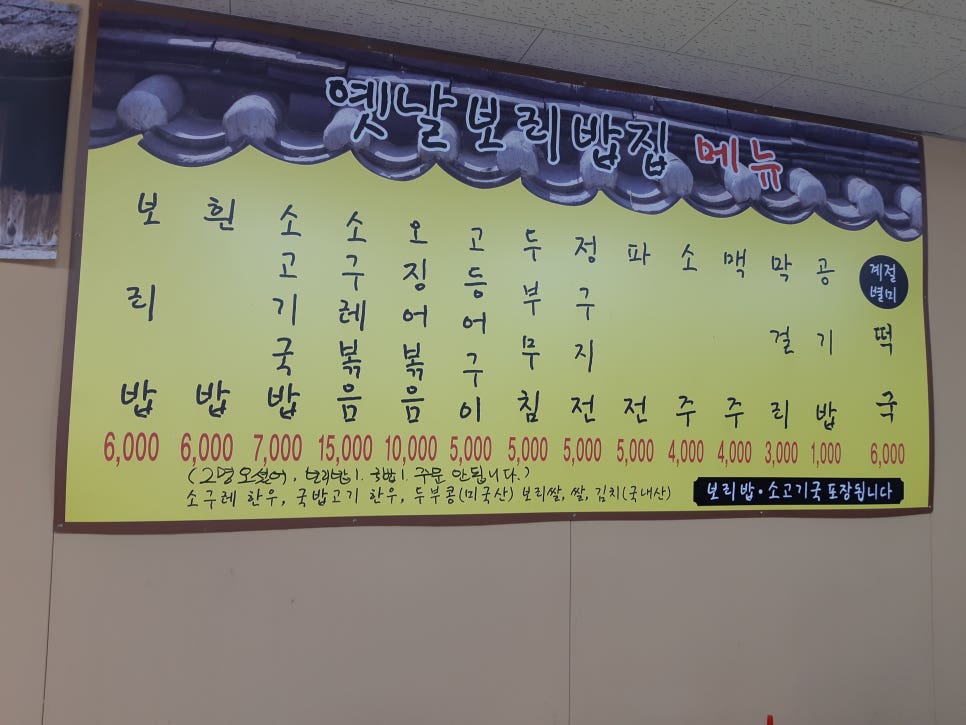 옛날보리밥집 메뉴
보리밥 6,000
흰밥 6,000
소고기국밥 7,000
소구레볶음 15,000
오징어볶음 10,000
고등어구이 5,000
두부무침 5,000
정구지전 5,000
파전 5,000
소주 4,000
맥주 4,000
막걸리 3,000
공기밥 1,000
계절별미 떡국 6,000
(2명 오셔서, 보리밥1. 국밥1. 주문 안됩니다.)
소구레 한우, 국밥고기 한우, 두부콩(미국산) 보리쌀, 쌀, 김치(국내산)
보리밥·소고기국 포장됩니다